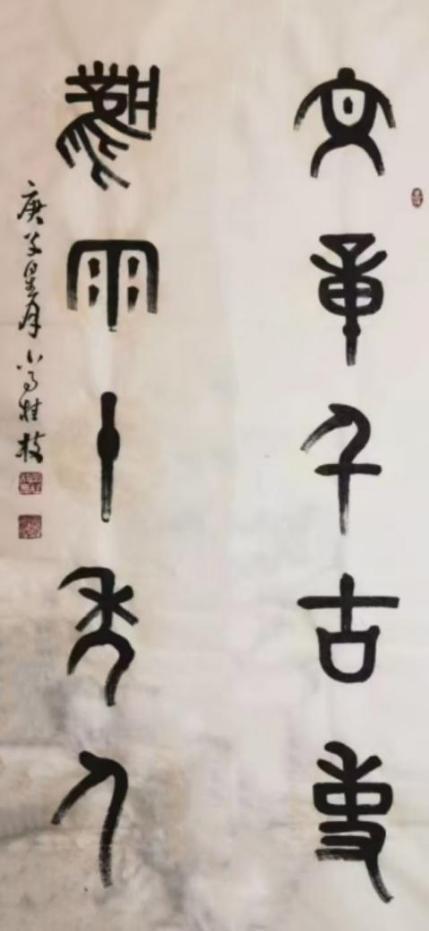 文章千古事
風雨十年人
庚子 月 桂枝